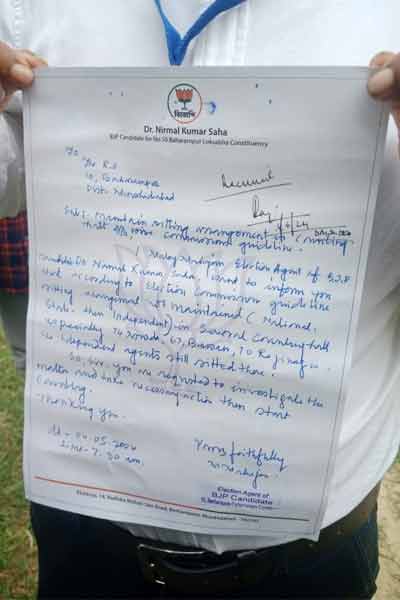 বিজেপি
Dr. Nirmal Kumar Saha
BJP Candidate for No 10 Baharampur Loksabha Constituency
To
The R.O
10, Berhampore
Dist. Murshidabad
Received
Sub: maintain sitting arrangement in Counting
hall as per Commission guideline.
Election Agent of BJP
Candidate Dr. Nirmal Kumar Saha want to inform you
that according to Election Commission guideline
sitting arrangement not maintained (National,
State then Independent) in Several Counting hall
especially 74 Nowda, 67, Burwan, 70 Rejinagar
Independent agents still sitted there.
So, Sir, you are requested to investigate the
matter and take necessary action then start
Counting.
Thanking you.
Yours faithfully
Time - 7.30 am.
Election Agent of
BJP Candidate